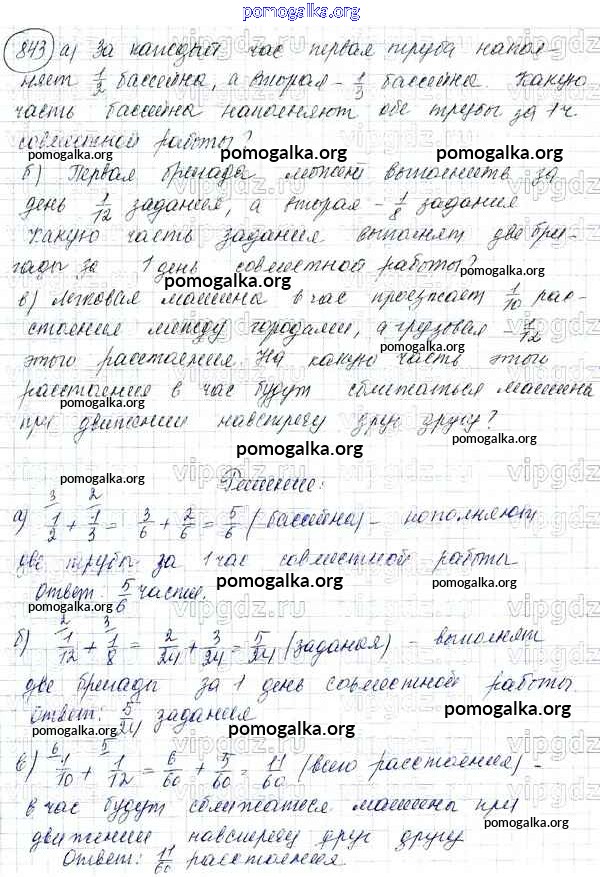 pomogalka.org
843 а) За каждый час первая труба напол-
няет 1/2 бассейна, а вторая - 1/3 бассейна. Какую
часть бассейна наполняют обе трубы за 1 ч
совместной работы?
pomogalka.org pomogalka.org pomogalka.org
б) Первая бригада может выполнить за
день 1/12 задания, а вторая - 1/8 задания
Какую часть задания выполнят две бри-
гады за 1 день совместной работы?
pomogalka.org
в) Легковая машина в час проезжает 1/10 рас-
стояние между городами, а грузовая - 1/12
этого расстояния. На какую часть этого
pomogalka.org
расстояния в час будут сближаться машины
pomogalka.org
при движении навстречу друг другу?
pomogalka.org pomogalka.org
Решение:
pomogalka.org
3 2
а) 1/2 + 1/3 = 3/6 + 2/6 = 5/6 (бассейна) - наполняют
две трубы за 1 час совместной работы
pomogalka.org
Ответ: 5/6 части.
pomogalka.org pomogalka.org
2 3
б) 1/12 + 1/8 = 2/24 + 3/24 = 5/24 (задания) - выполнят
две бригады за 1 день совместной работы.
Ответ: 5/24 задания
pomogalka.org
6 5
в) 1/10 + 1/12 = 6/60 + 5/60 = 11/60 (всего расстояния) -
pomogalka.org
в час будут сближатся машины при
движении навстречу друг другу
pomogalka.org
Ответ: 11/60 расстояния
pomogalka.org
vipgdz.ru